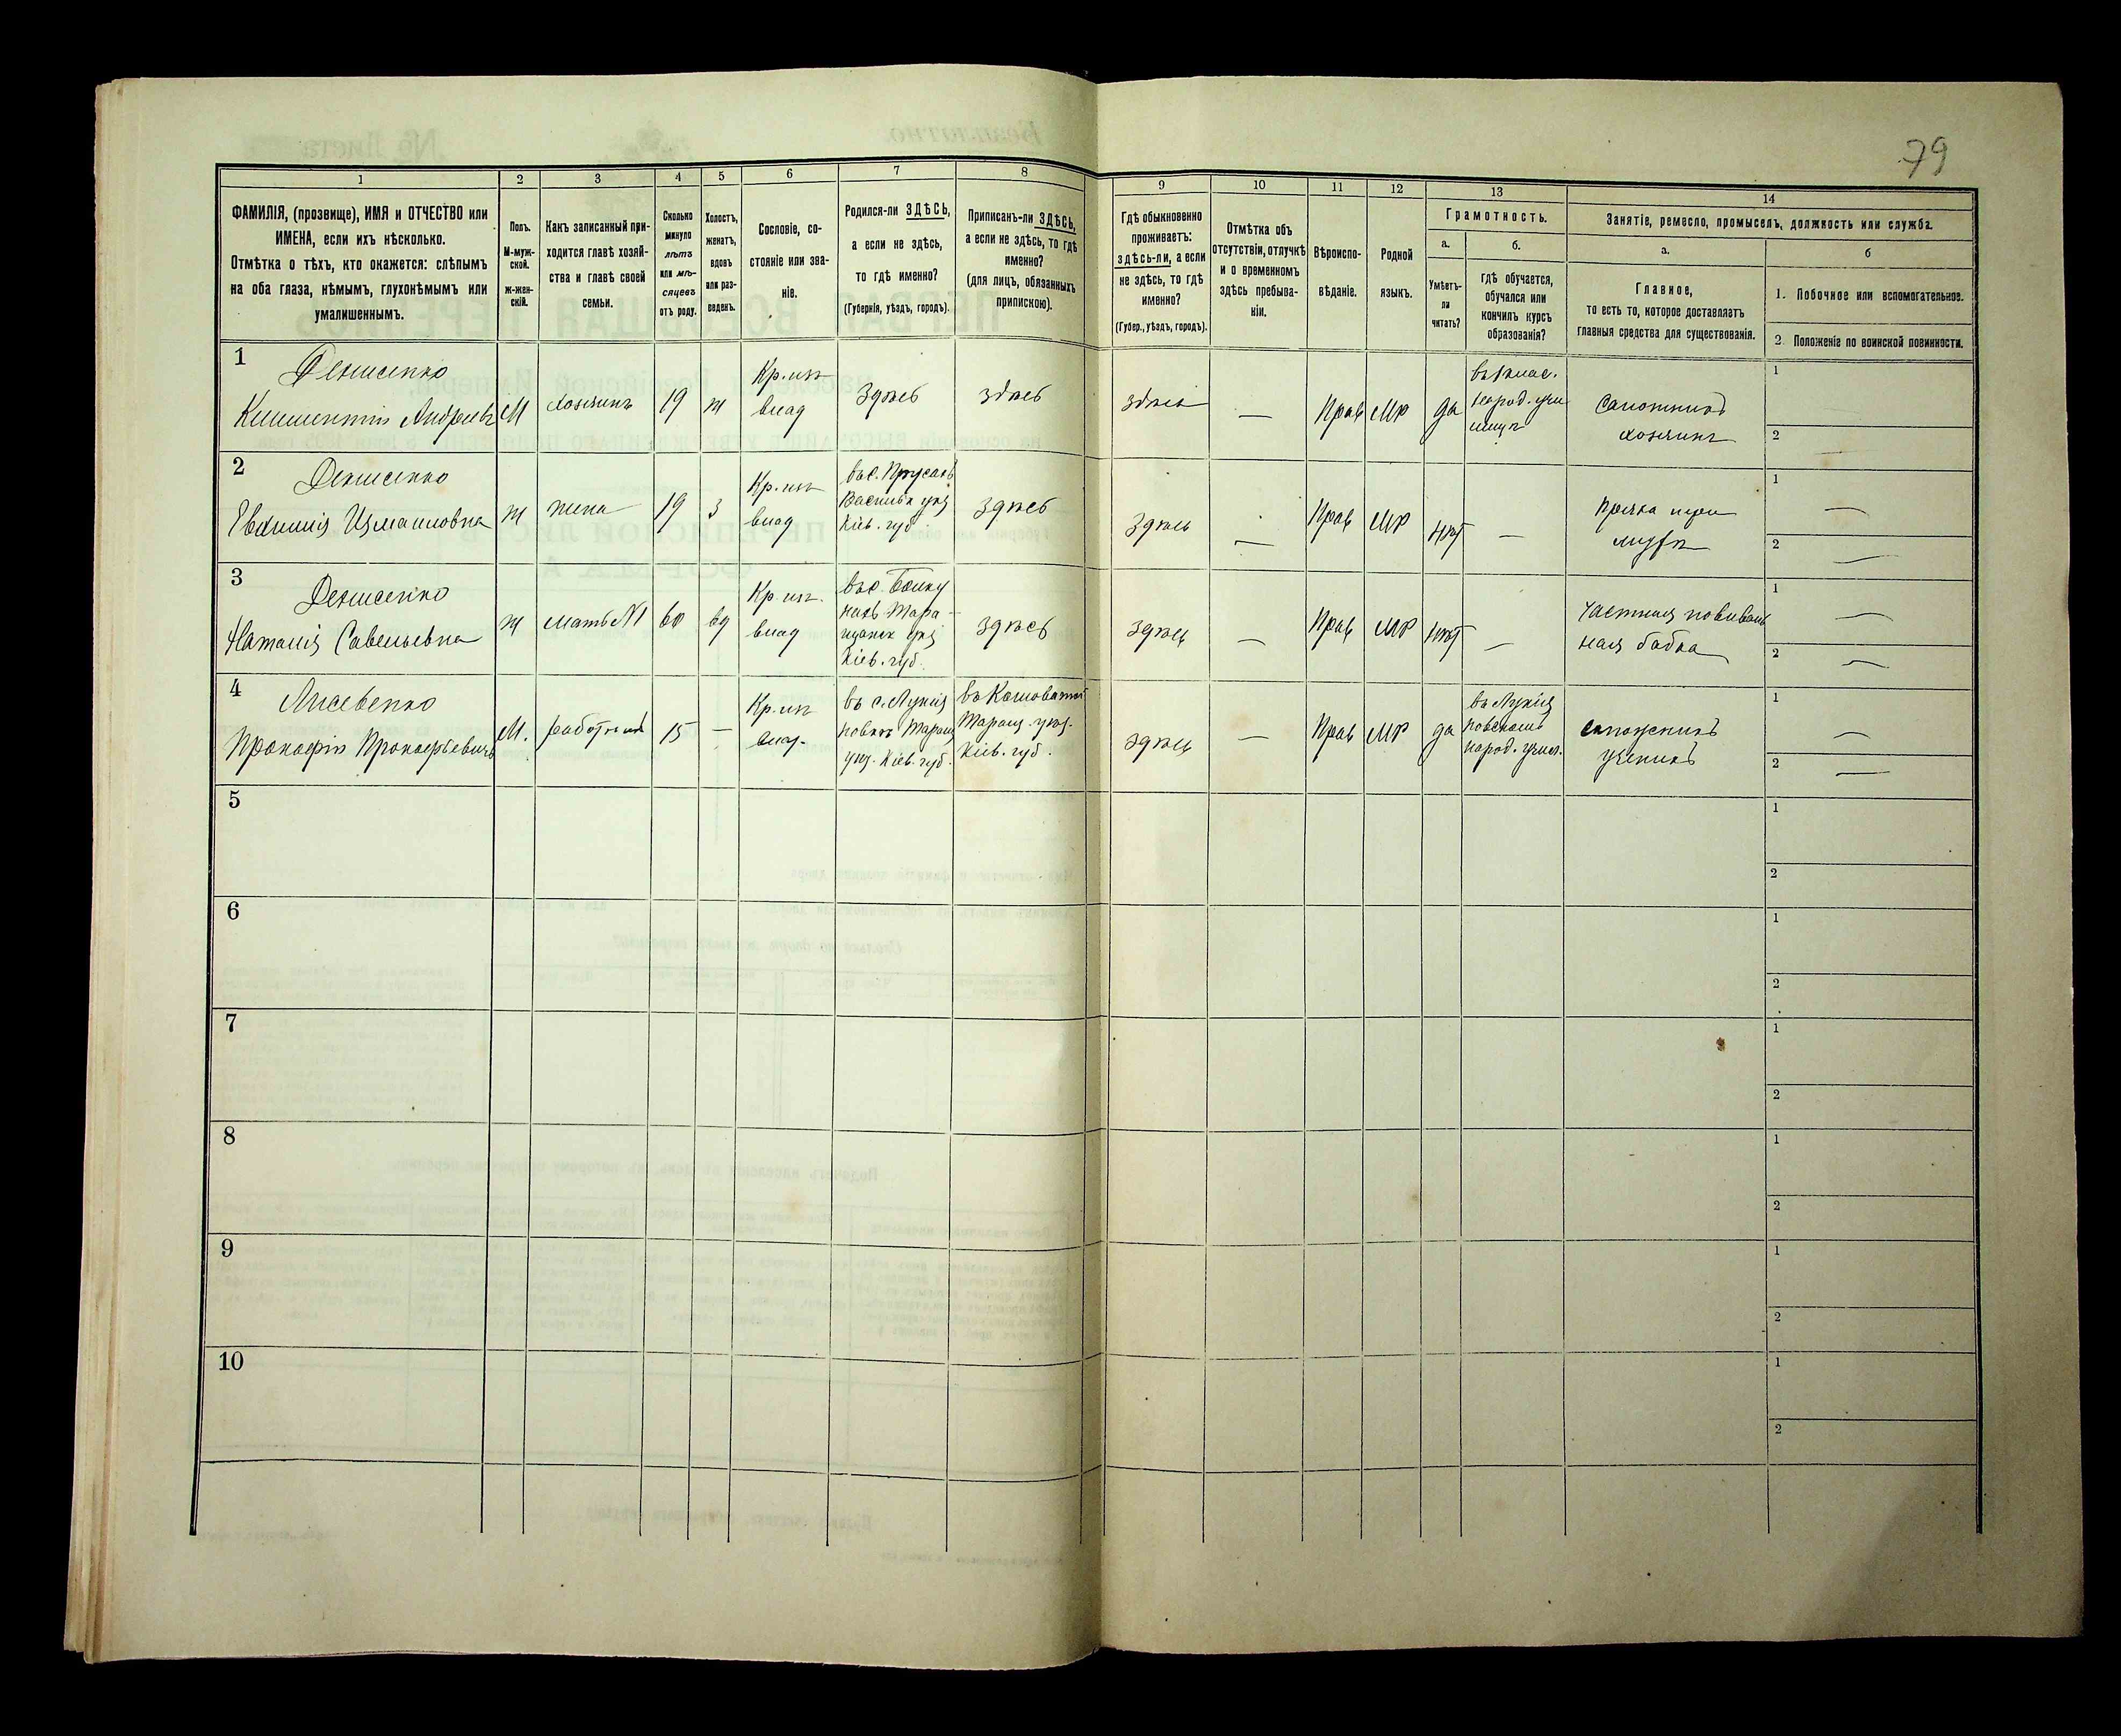 79
1
2
3
4
5
6
7
8
9
10
11
12
13
14
ФАМИЛІЯ, (прозвище), ИМЯ и ОТЧЕСТВО или
ИМЕНА, если ихъ нѣсколько.
Отмѣтка о тѣхъ, кто окажется: слѣпымъ
на оба глаза, нѣмымъ, глухонѣмымъ или
умалишеннымъ.
Полъ.
М-муж-
ской.
ж-жен-
скій.
Какъ записанный при-
ходится главѣ хозяй-
ства и главѣ своей
семьи.
Сколько
минуло
лѣтъ
или мѣ-
сяцевъ
отъ роду.
Холостъ,
женатъ,
вдовъ
или раз-
веденъ.
Сословіе, со-
стояніе или зва-
ніе.
Родился-ли ЗДѢСЬ,
а если не здѣсь,
то гдѣ именно?
(Губернія, уѣздъ, городъ).
Приписанъ-ли ЗДѢСЬ,
а если не здѣсь, то гдѣ
именно?
(для лицъ, обязанныхъ
припискою).
Гдѣ обыкновенно
проживаетъ:
здѣсь-ли, а если
не здѣсь, то гдѣ
именно?
(Губер., уѣздъ, городъ).
Отмѣтка объ
отсутствіи, отлучкѣ
и о временномъ
здѣсь пребыва-
ніи.
Вѣроиспо-
вѣданіе.
Родной
языкъ.
Грамотность.
а.
Умѣетъ-
ли
читать?
б.
гдѣ обучается,
обучался или
кончилъ курсъ
образованія?
Занятіе, ремесло, промыселъ, должность или служба.
а.
Главное,
то есть то, которое доставляетъ
главныя средства для существованія.
б
1. Побочное или вспомогательное.
2. Положеніе по воинской повинности.
1
Денисенко
Климентій Андреевъ
М
хозяинъ
19
ж
Кр. изъ
влад
Здѣсь
здѣсь
здѣсь
—
Прав
Мр
да
народ. учи
Сапожникъ
хозяинъ
1
2
2
Денисенко
Евдокія Измаиловна
ж
жена
19
з
Кр. изъ
влад
въ с.
Васильк уѣз
Кіев. губ
здѣсь
здѣсь
—
Прав
Мр
нѣт
—
Пряжа
1
—
2
—
3
Денисенко
Наталія Савельевна
ж
мать №1
60
вд
Кр. изъ.
влад
въ с.
Тара-
щанск уѣз
Кіев. губ.
здѣсь
здѣсь
—
Прав
Мр
нѣт
—
Частная повиваль
ная бабка
1
—
2
—
4
Прокофій Прокофьевичъ
М.
работникъ
15
—
Кр. изъ
влад.
въ с.
Таращ
уѣз. Кіев. губ.
въ
Таращ. уѣз.
Кіев. губ.
здѣсь
—
Прав
Мр
да
народ. учил.
сапожникъ
ученикъ
1
—
2
—
5
1
2
6
1
2
7
1
2
8
1
2
9
1
2
10
1
2